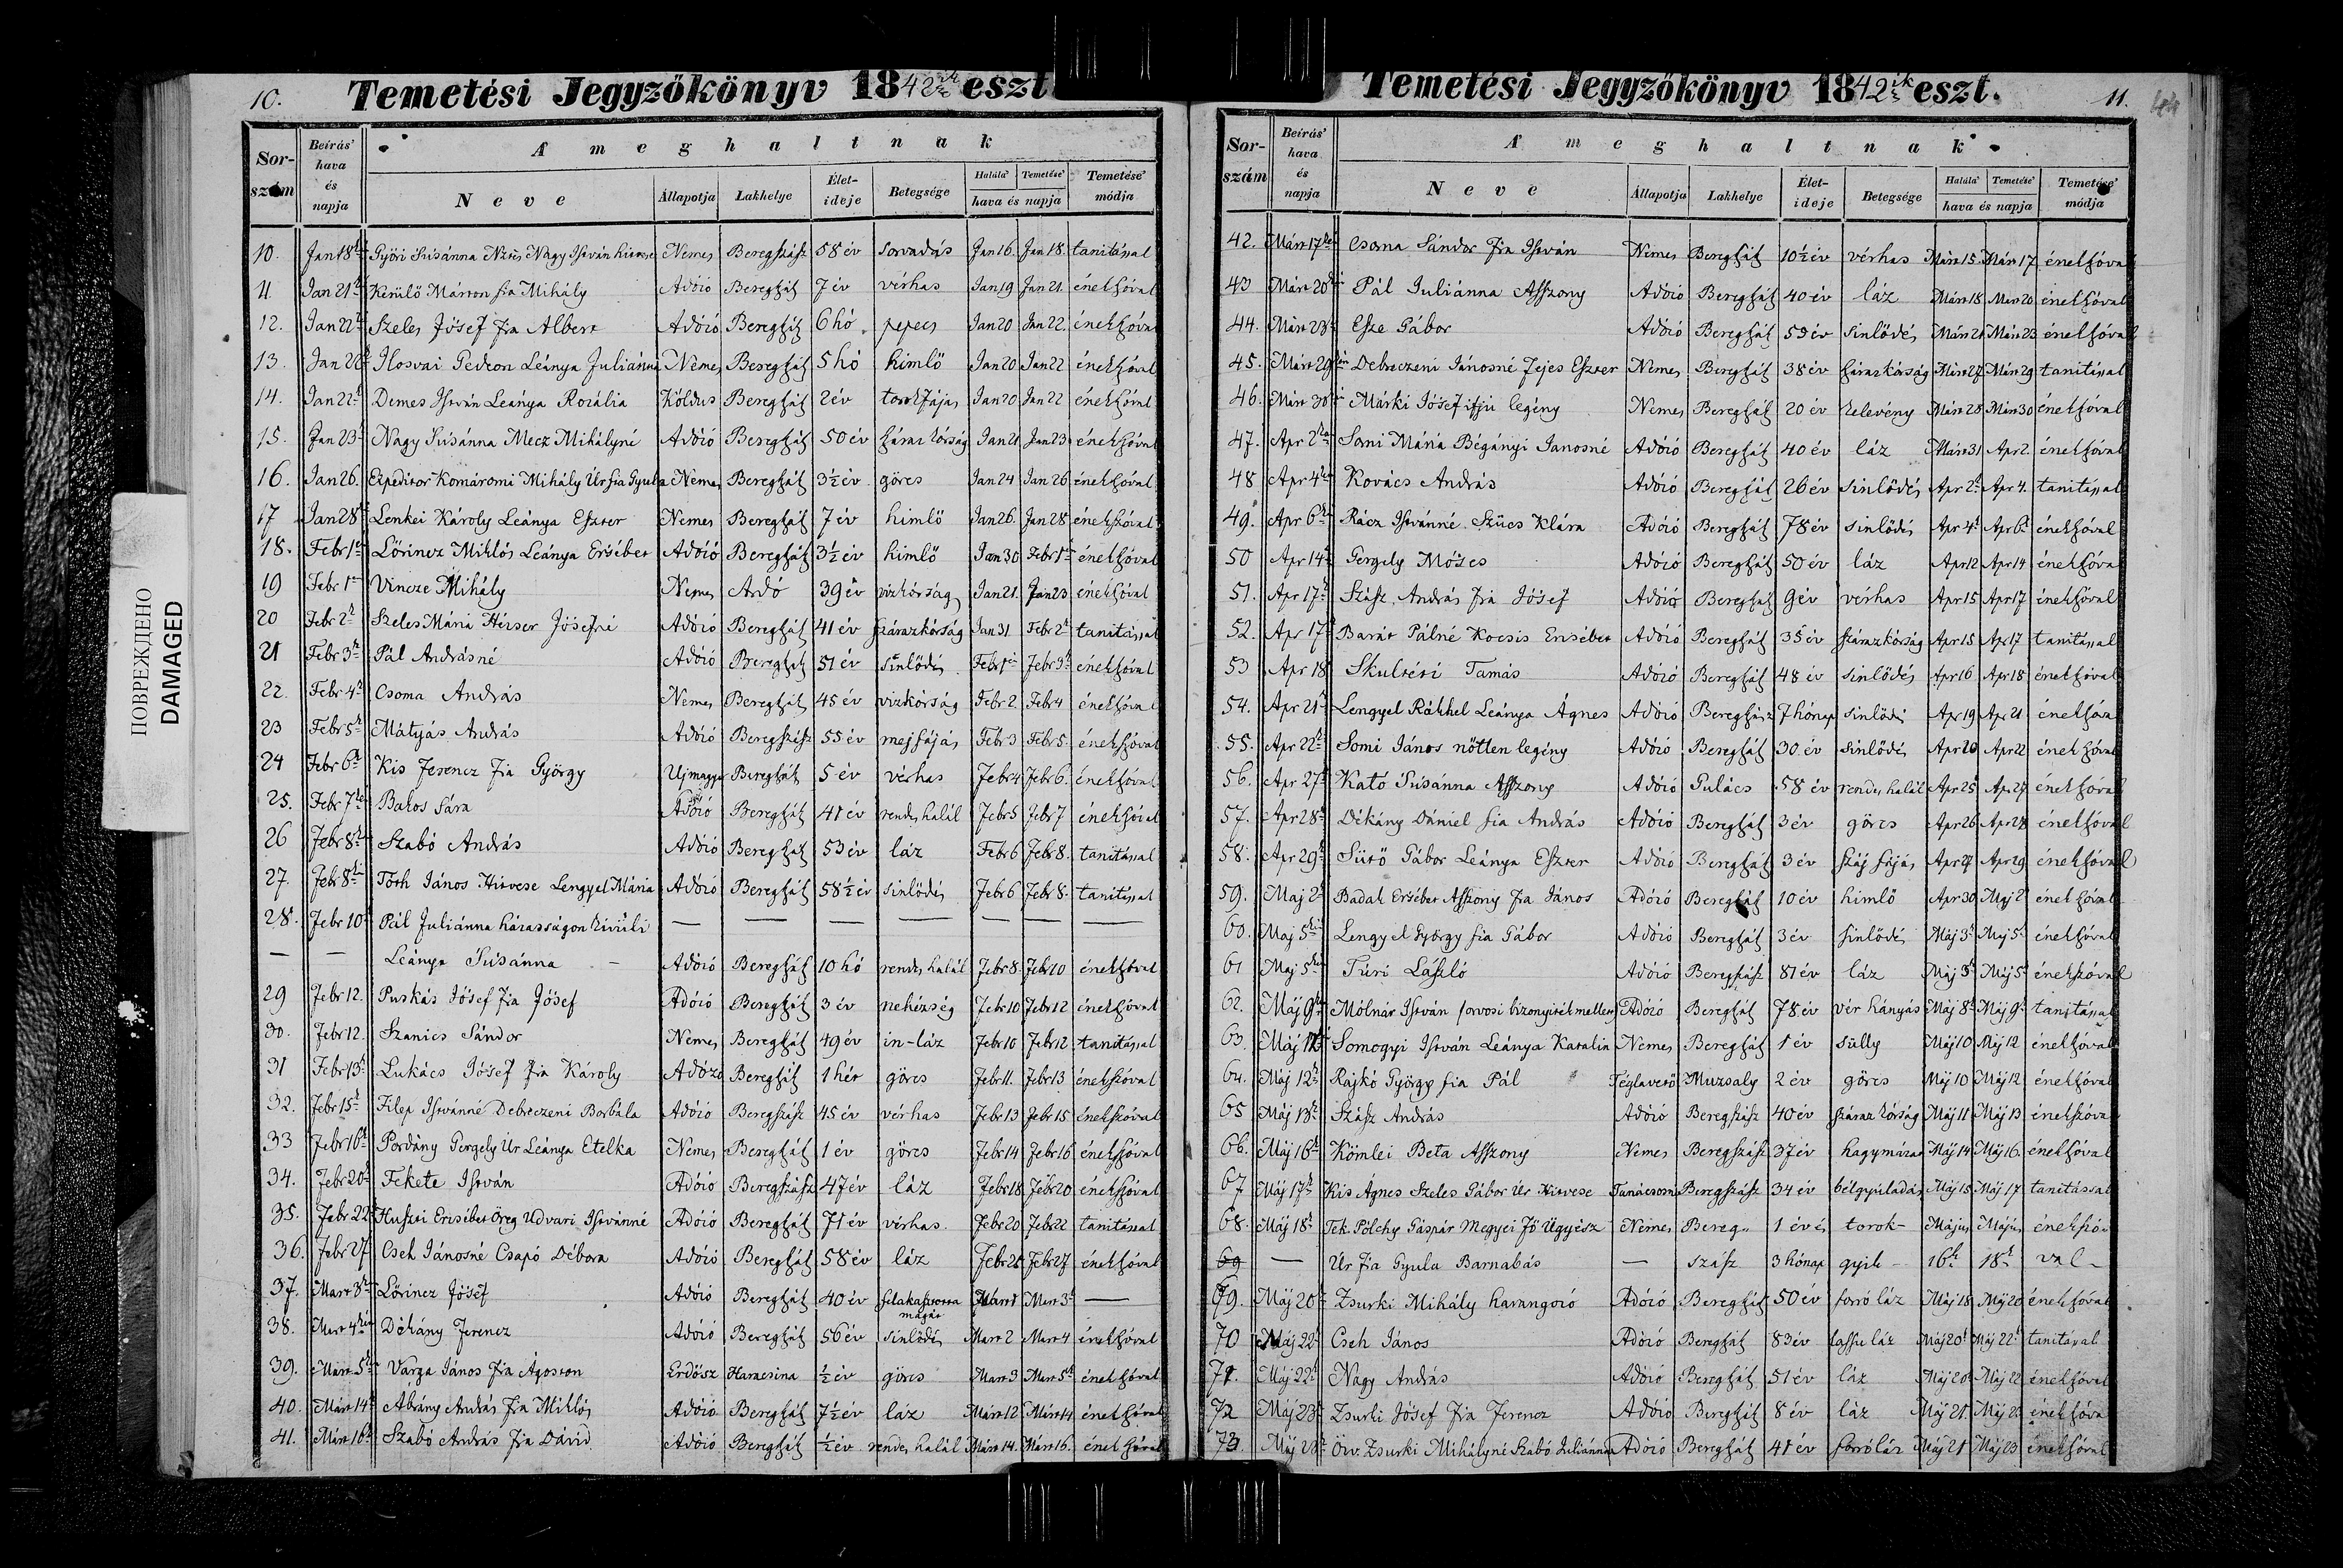 10.
Temetési Jegyzőkönyv 1842ik eszt
Sor-szám | Beírás' hava és napja | A' meghaltnak
Neve | Állapotja | Lakhelye | Élet-ideje | Betegsége | Halála' | Temetése' hava és napja | Temetése' módja
10. Jan 18k Győri Susánna Nztes Nagy István hitvese Nemes Beregszász 58 év sorvadás Jan 16. Jan 18. tanitással
11 Jan 21k Kerülő Márton fia Mihály Adózó Bereghsz 7 év vérhas Jan 19 Jan 21. énekszóval
12. Jan 22k Szeles Jósef fia Albert Adózó Beregsz 6 hó pepecs Jan 20 Jan 22. énekszóval
13. Jan 22k Ilosvai Gedeon Leánya Juliánna Nemes Beregsz 5 hó himlő Jan 20 Jan 22 énekszóval
14. Jan 22k Demes István Leánya Rozália Kóldus Beregsz 2 év torokfájás Jan 20 Jan 22 énekszóval
15. Jan 23k Nagy Susánna Mecz Mihályné Adózó Beregsz 50 év száraz kórság Jan 21 Jan 23 énekszóval
16. Jan 26. Expeditor Komáromi Mihály Úr fia Gyula Nemes Beregsz 3½ év görcs Jan 24 Jan 26. énekszóval
17 Jan 28k Lenkei Károly Leánya Eszter Nemes Beregsz 7 év himlő Jan 26. Jan 28 énekszóval
18. Febr 1ő Lőrincz Miklós Leánya Ersébet Adózó Beregsz 3½ év himlő Jan 30 Febr 1ő énekszóval
19 Febr 1ő Vincze Mihály Nemes Ardó 39 év vizkórság Jan 21. Jan 23 énekszóval
20 Febr 2k Szeles Mária Heiser Jósefné Adózó Beregsz 41 év szárazkórság Jan 31 Febr 2k tanitással
21 Febr 3k Pál Andrásné Adózó Beregsz 51 év sinlődés Febr 1ő Febr 3k énekszóval
22. Febr 4k Csoma András Nemes Beregsz 45 év vizkórság Febr 2 Febr 4 énekszóval
23 Febr 5k Mátyás András Adózó Beregszász 55 év mejfájás Febr 3 Febr 5. énekszóval
24 Febr 6k Kis Ferencz fia György Ujmagyar Beregsz 5 év vérhas Febr 4 Febr 6. énekszóval
25. Febr 7k Bakos Sára Adózó Beregsz 41 év rendes halál Febr 5 Febr 7 énekszóval
26 Febr 8k Szabó András Adózó Beregsz 53 év láz Febr 6 Febr 8. tanitással
27. Febr 8k Tóth János Hitvese Lengyel Mária Adózó Beregsz 58½ év sinlődés Febr 6 Febr 8. tanitással
28. Febr 10k Pál Juliánna házasságon kivüli — — — — — — —
— — Leánya Susánna – Adózó Beregsz 10 hó rendes halál Febr 8. Febr 10 énekszóval
29 Febr 12. Puskás Jósef fia Jósef Adózó Beregsz 3 év nehézség Febr 10 Febr 12 énekszóval
30. Febr 12. Szanics Sándor Nemes Beregsz 49 év in-láz Febr 10 Febr 12. tanitással
31 Febr 13k Lukács Jósef fia Károly Adózó Beregsz 1 hét görcs Febr 11. Febr 13 énekszóval
32. Febr 15k Filep Istvánné Debreczeni Borbála Adózó Beregszász 45 év vérhas Febr 13 Febr 15. énekszóval
33 Febr 16k Pordány Gergely Úr Leánya Etelka Nemes Beregsz 1 év görcs Febr 14 Febr 16 énekszóval
34. Febr 20k Fekete István Adózó Beregszász 47 év láz Febr 18 Febr 20 énekszóval
35. Febr 22 Huszti Ersébet Öreg Udvari Istvánné Adózó Beregsz 71 év vérhas. Febr 20 Febr 22 tanitással
36. Febr 27 Cseh Jánosné Csapó Débora Adózó Beregsz 58 év láz Febr 25 Febr 27 énekszóval
37. Mart 3k Lőrincz Jósef Adózó Beregsz 40 év felakasztotta magát Mart 1 Mart 3k —
38. Mart 4k Dékány Ferencz Adózó Beregsz 56 év sinlődés Mart 2 Mart 4 énekszóval
39. Márt 5k Varga János fia Ágoston Erdősz Haracsina ½ év görcs Mart 3 Mart 5k énekszóval
40. Márt 14k Abrány András fia Miklós Adózó Beregsz 7½ év láz Márt 12 Márt 14 énekszóval
41. Márt 16k Szabó András fia Dávid Adózó Beregsz ½ év rendes halál Márt 14. Márt 16. énekszóval
ПОВРЕЖДЕНО
DAMAGED
Temetési Jegyzőkönyv 1842ik eszt.
11. 44
Sor-szám | Beírás' hava és napja | A' meghaltnak
Neve | Állapotja | Lakhelye | Élet-ideje | Betegsége | Halála' | Temetése' hava és napja | Temetése' módja
42. Márt 17k Csoma Sándor fia István Nemes Beregsz 10½ év vérhas Márt 15. Márt 17 énekszóval
43 Márt 20k Pál Juliánna Asszony Adózó Beregsz 40 év láz Márt 18 Márt 20 énekszóval
44. Márt 23k Esze Gábor Adózó Beregsz 59 év sinlődés Márt 21 Márt 23 énekszóval
45. Márt 29k Debreczeni Jánosné Fejes Eszter Nemes Beregsz 38 év szárazkórság Márt 27 Márt 29 tanitással
46. Márt 30k Márki Jósef ifju legény Nemes Beregsz 20 év kelevény Márt 28 Márt 30 énekszóval
47. Apr 2k Somi Mária Bégányi Janosné Adózó Beregsz 40 év láz Márt 31 Apr 2. énekszóval
48 Apr 4k Kovács András Adózó Beregsz 26 év sinlődés Apr 2k Apr 4. tanitással
49. Apr 6k Rácz Istvánné Szücs Klára Adózó Beregsz 78 év sinlődés Apr 4k Apr 6k énekszóval
50 Apr 14k Gergely Móses Adózó Beregsz 50 év láz Apr 12 Apr 14 énekszóval
51. Apr 17k Szász András fia Jósef Adózó Beregsz 9 év vérhas Apr 15 Apr 17 énekszóval
52. Apr 17k Barát Pálné Kocsis Ersébet Adózó Beregsz 35 év szárazkórság Apr 15 Apr 17 tanitással
53 Apr 18 Skultéti Tamás Adózó Beregsz 48 év sinlődés Apr 16 Apr 18 énekszóval
54. Apr 21k Lengyel Rákhel Leánya Ágnes Adózó Beregsz 7 hónap sinlődés Apr 19 Apr 21 énekszóval
55. Apr 22k Somi János nőtlen legény Adózó Beregsz 30 év sinlődés Apr 20 Apr 22 énekszóval
56. Apr 27k Kató Susánna Asszony Adózó Gulács 58 év rendes halál Apr 25 Apr 27 énekszóval
57. Apr 28k Dékány Dániel fia András Adózó Beregsz 3 év görcs Apr 26 Apr 28 énekszóval
58. Apr 29k Sütő Gábor Leánya Eszter Adózó Beregsz 3 év száj fájás Apr 27 Apr 29 énekszóval
59. Maj 2k Badak Ersébet Asszony fia János Adózó Beregsz 10 év himlő Apr 30 Maj 2 énekszóval
60. Maj 5k Lengyel György fia Gábor Adózó Beregsz 3 év sinlődés Máj 3k Maj 5. énekszóval
61 Maj 5k Túri László Adózó Beregszász 81 év láz Máj 3k Máj 5. énekszóval
62. Máj 9k Mólnár István orvosi bizonyiték mellett Adózó Beregsz 78 év vér hányás Máj 8k Máj 9k tanitással
63. Máj 12k Somogyi István Leánya Katalin Nemes Beregsz 1 év sülly Máj 10 Máj 12 énekszóval
64. Máj 12k Rajkó György fia Pál Téglavető Muzsaly 2 év görcs Máj 10 Máj 12 énekszóval
65 Máj 13k Szász András Adózó Beregszász 40 év száraz kórság Máj 11 Máj 13 énekszóval
66. Máj 16k Kömlei Beta Asszony Nemes Beregszász 37 év hagymáza Máj 14 Máj 16. énekszóval
67 Máj 17k Kis Agnes Szeles Gábor Úr Hitvese Tanácsnok Beregszász 34 év bélgyúladás Máj 15 Máj 17 tanitással
68. Máj 18k Tek. Pólchy Gáspár Megyei Fő Ügyész Nemes Bereg- 1 év és torok- Május Május énekszó-
69 — Úr fia Gyula Barnabás — szász 3 hónap gyik – 16k 18k val
69. Máj 20k Zsurki Mihály harangozó Adózó Beregsz 50 év forró láz Máj 18 Máj 20 énekszóval
70 Máj 22k Cseh János Adózó Beregsz 83 év lassu láz Máj 20k Máj 22k tanitással
71. Máj 22k Nagy András Adózó Beregsz 51 év láz Máj 20k Máj 22 énekszóval
72 Máj 23k Zsurki Jósef fia Ferencz Adózó Beregsz 8 év láz Máj 21 Máj 23 énekszóval
73 Máj 23k Özv. Zsurki Mihályné Szabó Juliánna Adózó Beregsz 41 év forróláz Máj 21 Máj 23 énekszóval